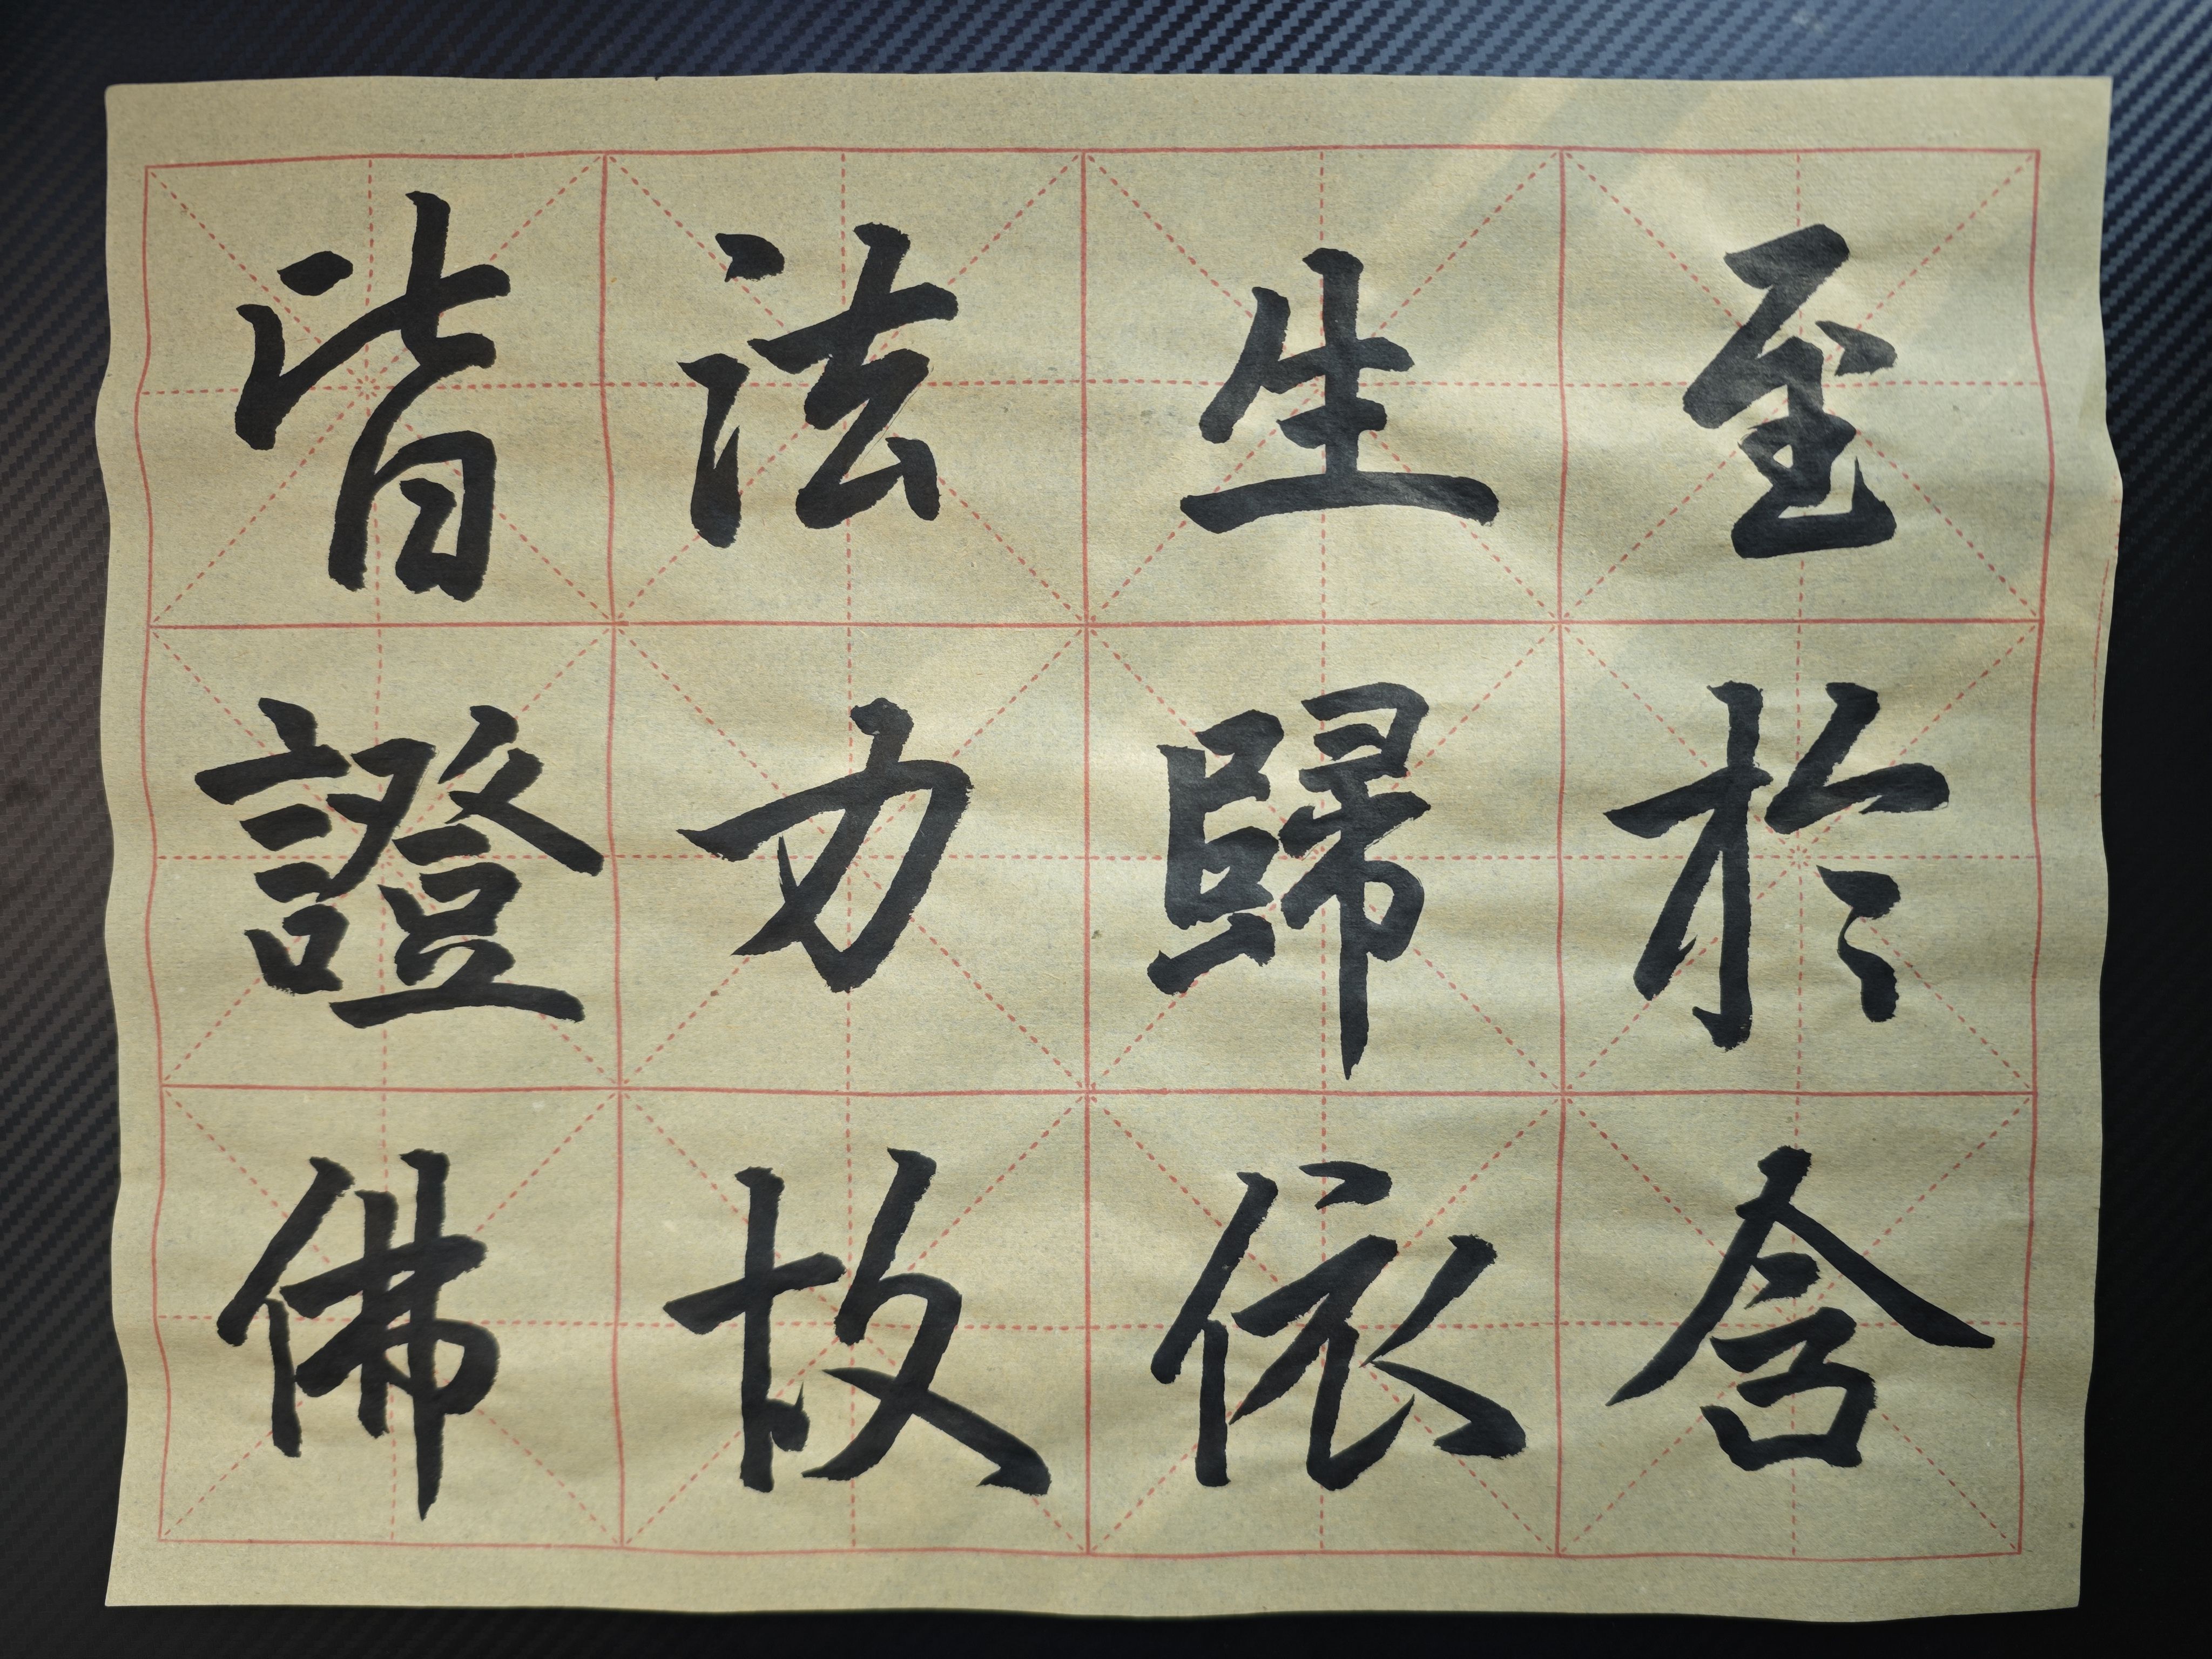 至於含
生歸依
法力故
皆證佛